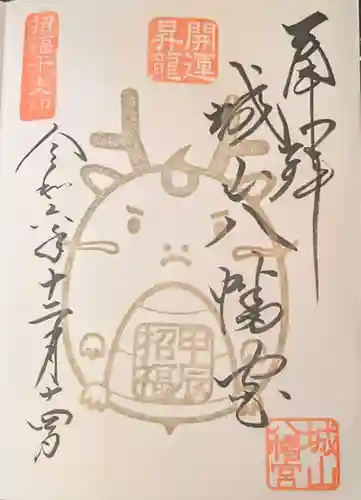 奉拝
開運
昇龍
城山八幡宮
甲辰
招福
令和六年十二月十四日
招福干支印
城山
八幡宮